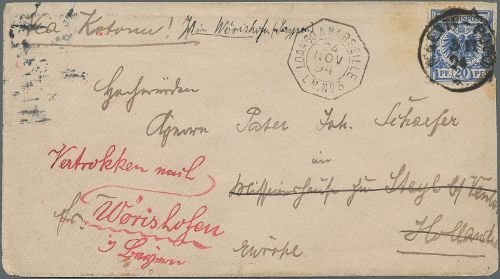 via Kotonu! Jetzt in Wörishofen (Bayern)
LOANGO A MARSEILLE
24
NOV
94
L.M. Nº 5
REICHSPOST
PF. 20 PF.
Hochwürden
Herrn Pater Joh. Schaefer
Vertrokken nach
im
Missionshause zu Steyl b/ Venlo
Wörishofen
Holland
Bayern
Europe